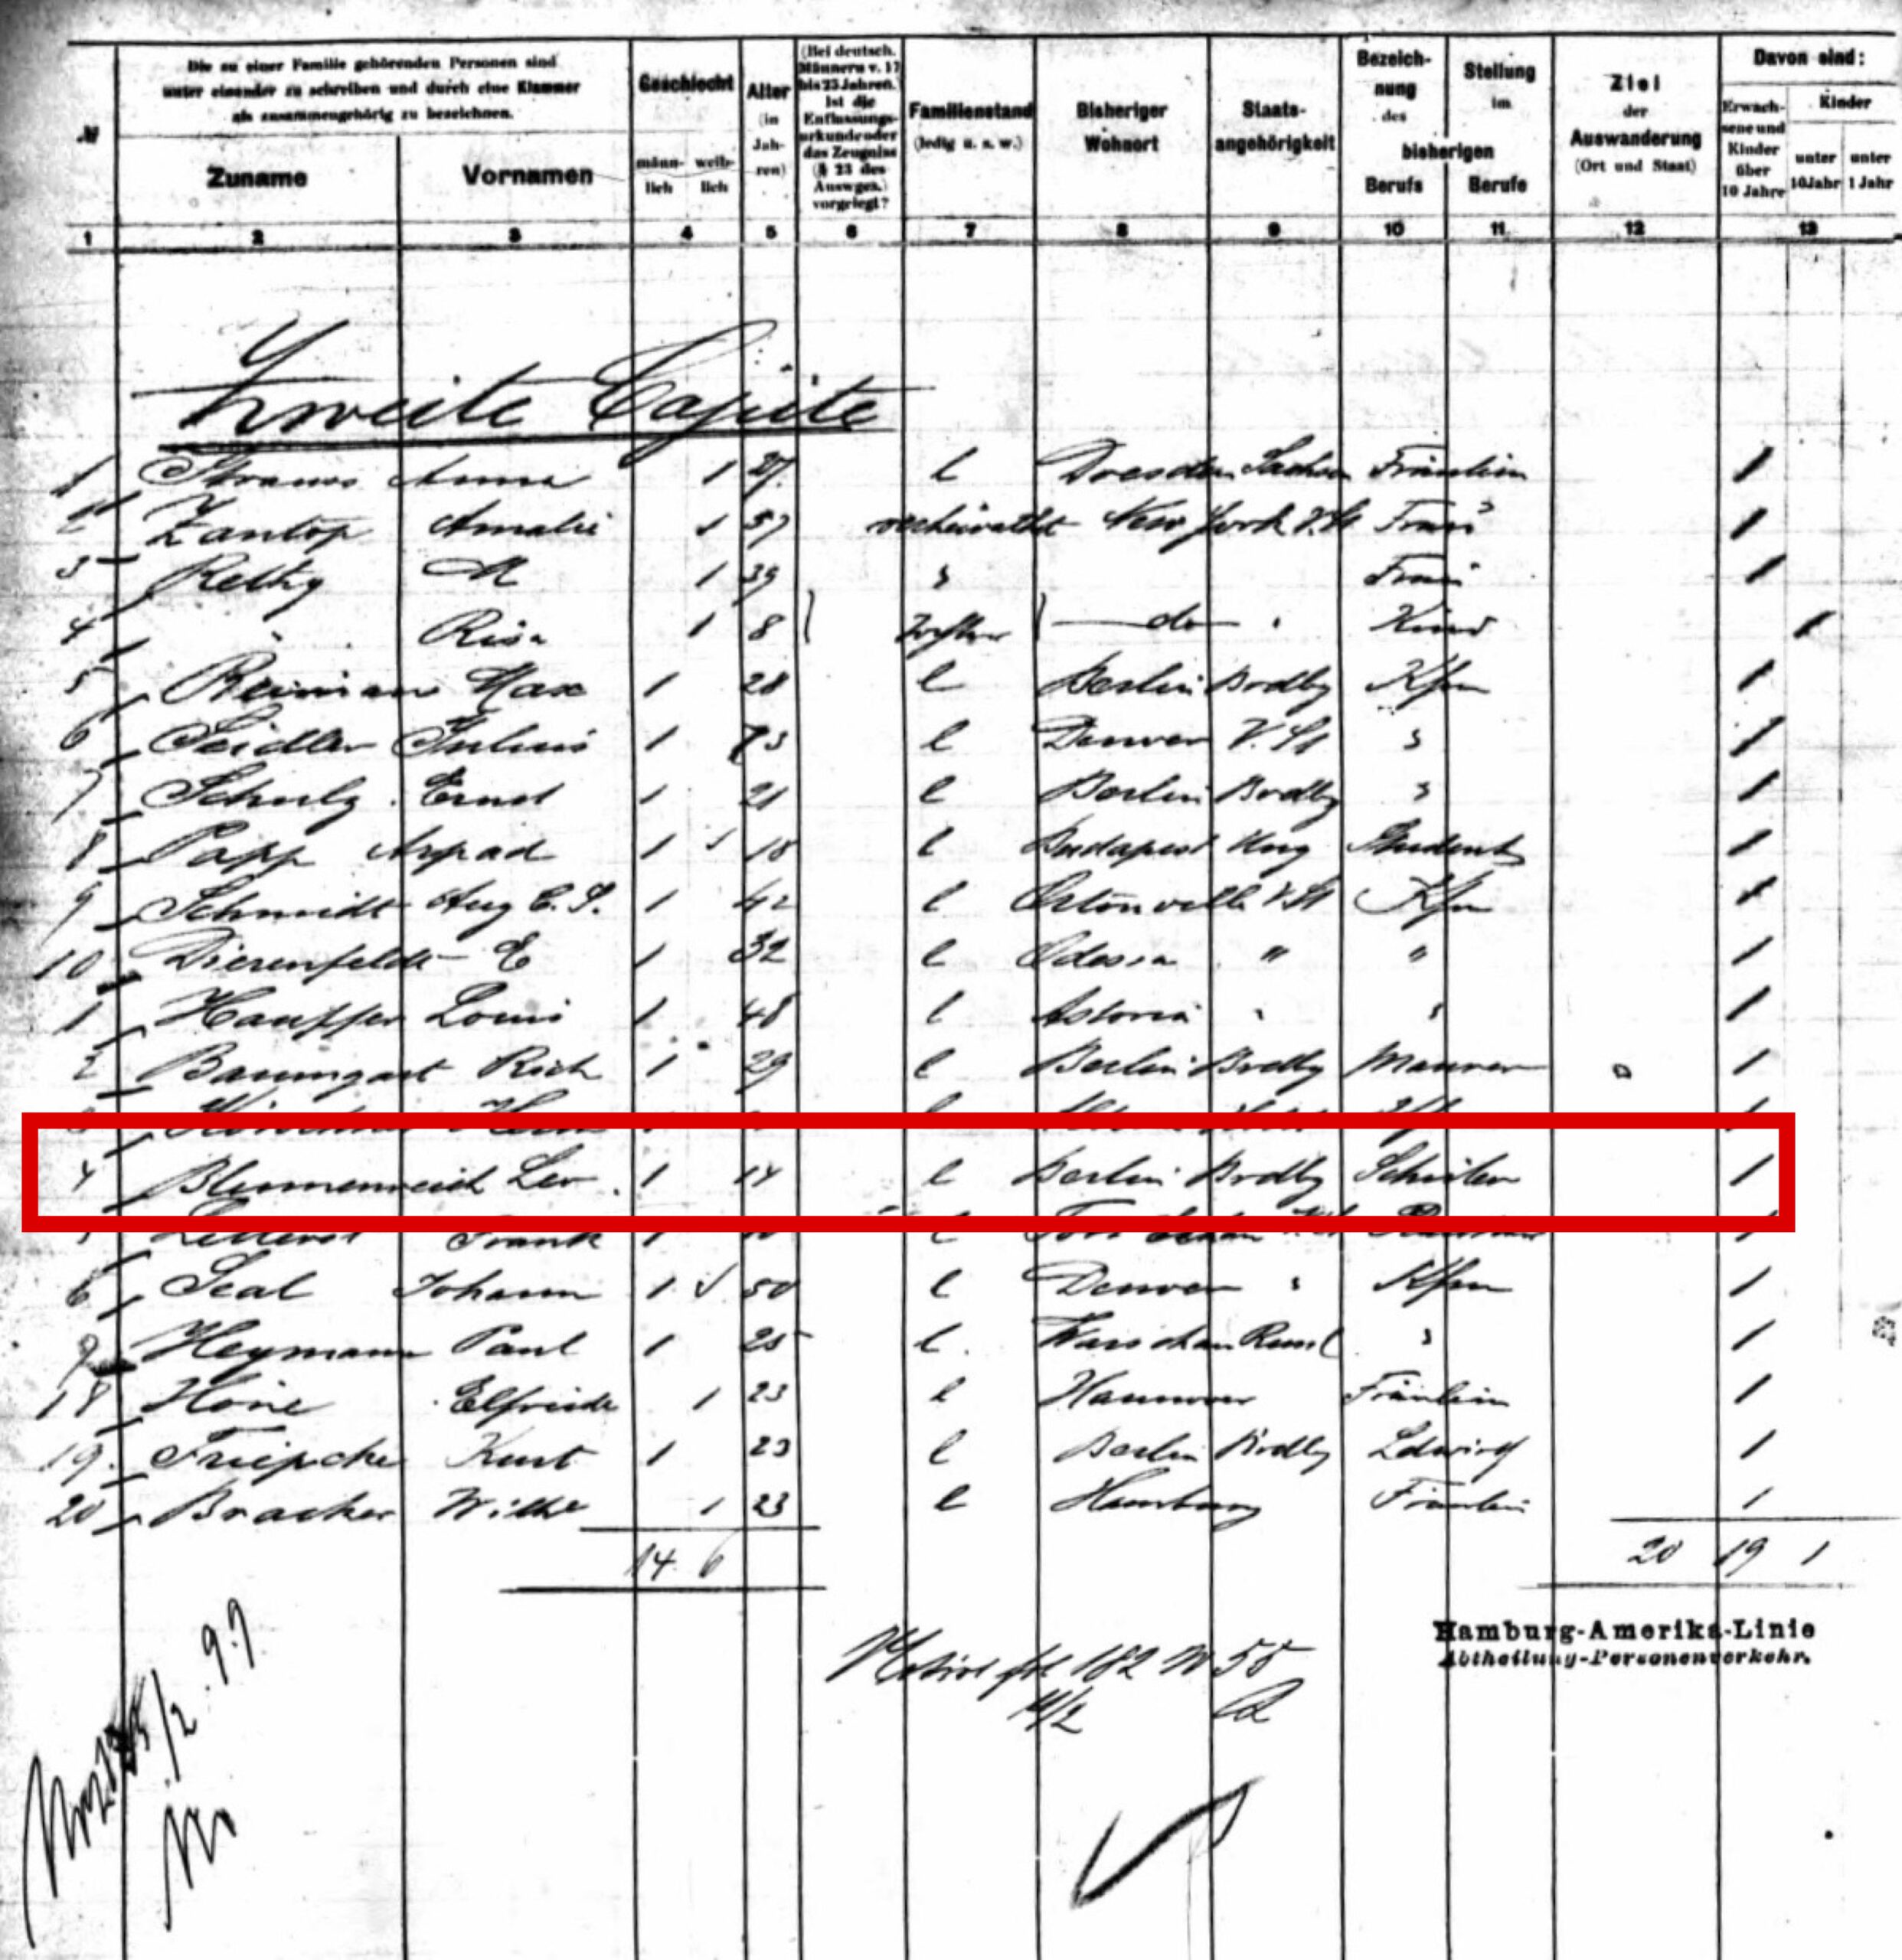 Die zu einer Familie gehörenden Personen sind
unter einander zu schreiben und durch eine Klammer
als zusammengehörig zu bezeichnen.
Zuname Vornamen
Geschlecht
männ- weib-
lich lich
Alter
(in
Jah-
ren)
(Bei deutsch.
Männern v. 17
bis 25 Jahren.
Ist die
Entlassungs-
urkunde oder
das Zeugniss
(§ 23 des
Auswges.)
vorgelegt?
Familienstand
(ledig u. s. w.)
Bisheriger
Wohnort
Staats-
angehörigkeit
Bezeich-
nung
des
Stellung
im
bisherigen
Berufs Berufe
Ziel
der
Auswanderung
(Ort und Staat)
Davon sind:
Erwach-
sene und
Kinder
über
10 Jahre
Kinder
unter unter
10 Jahr 1 Jahr
1 2 3 4 5 6 7 8 9 10 11 12 13
Zweite Cajüte
1 Strauss Anna 1 27 l Dresden Sachsen Fräulein 1
2 Zantop Amalie 1 57 verheirathet New York V.St Frau 1
3 M 1 39 " Frau 1
4 " 1 8 do " Kind 1
5 Max 1 28 l Berlin Brdbg Kfm 1
6 Seidler Julius 1 l Denver V.St " 1
7 Schulz Ernst 1 21 l Berlin Brdbg " 1
8 Papp Arpad 1 18 l Budapest Ung Student 1
9 Schmidt Aug 1 42 l V.St Kfm 1
10 Dierenfeldt E 1 32 l Odessa " " 1
1 Louis 1 48 l Astoria " " 1
2 Baumgart Rich 1 29 l Berlin Brdbg Maurer 1
4 Blumenreich Leo 1 14 l Berlin Brdbg Schüler 1
Frank 1 l 1
6 Seal Johann 1 50 l Denver " Kfm 1
7 Heymann Paul 1 25 l Warschau Russl " 1
18 Elfriede 1 23 l Hannover Fräulein 1
19 Kurt 1 23 l Berlin Brdbg Ldwirt 1
20 Bracker 1 23 l Hamburg Fräulein 1
14 6 20 19 1
Hamburg-Amerika-Linie
Abtheilung-Personenverkehr.
182 55